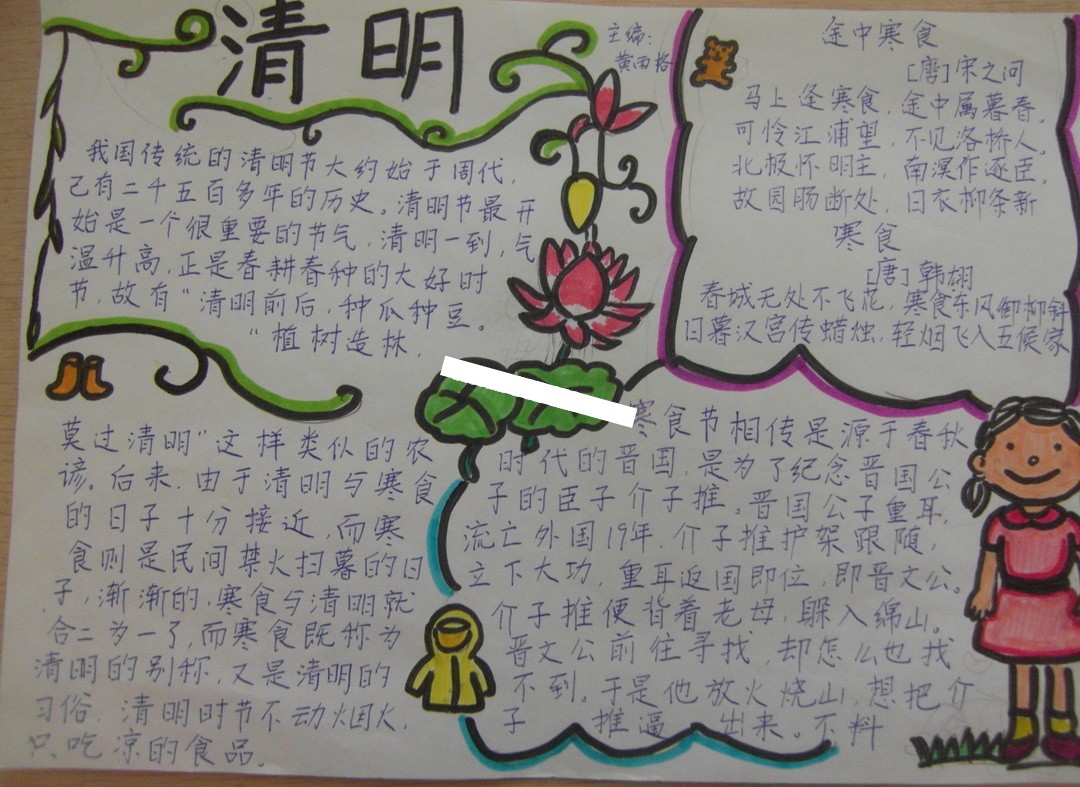 清明
主编:
黄雨格
我国传统的清明节大约始于周代,
已有二千五百多年的历史。清明节最开
始是一个很重要的节气,清明一到,气
温升高,正是春耕春种的大好时
节,故有"清明前后,种瓜种豆。
"植树造林,
莫过清明"这样类似的农
谚。后来,由于清明与寒食
的日子十分接近,而寒
食则是民间禁火扫暮的日
子,渐渐的,寒食与清明就
合二为一了,而寒食既称为
清明的别称,又是清明的
习俗,清明时节不动烟火,
只吃凉的食品。
途中寒食
[唐]宋之问
马上逢寒食,途中属暮春,
可怜江浦望,不见洛桥人。
北极怀明主,南溟作逐臣。
故园肠断处,日衣柳条新
寒食
[唐]韩翃
春城无处不飞花,寒食东风御柳斜
日暮汉宫传蜡烛,轻烟飞入五侯家
寒食节相传是源于春秋
时代的晋国,是为了纪念晋国公
子的臣子介子推。晋国公子重耳,
流亡外国19年,介子推护架跟随,
立下大功,重耳返国即位,即晋文公。
介子推便背着老母,躲入绵山。
晋文公前往寻找,却怎么也找
不到。于是他放火烧山,想把介
子推逼出来。不料